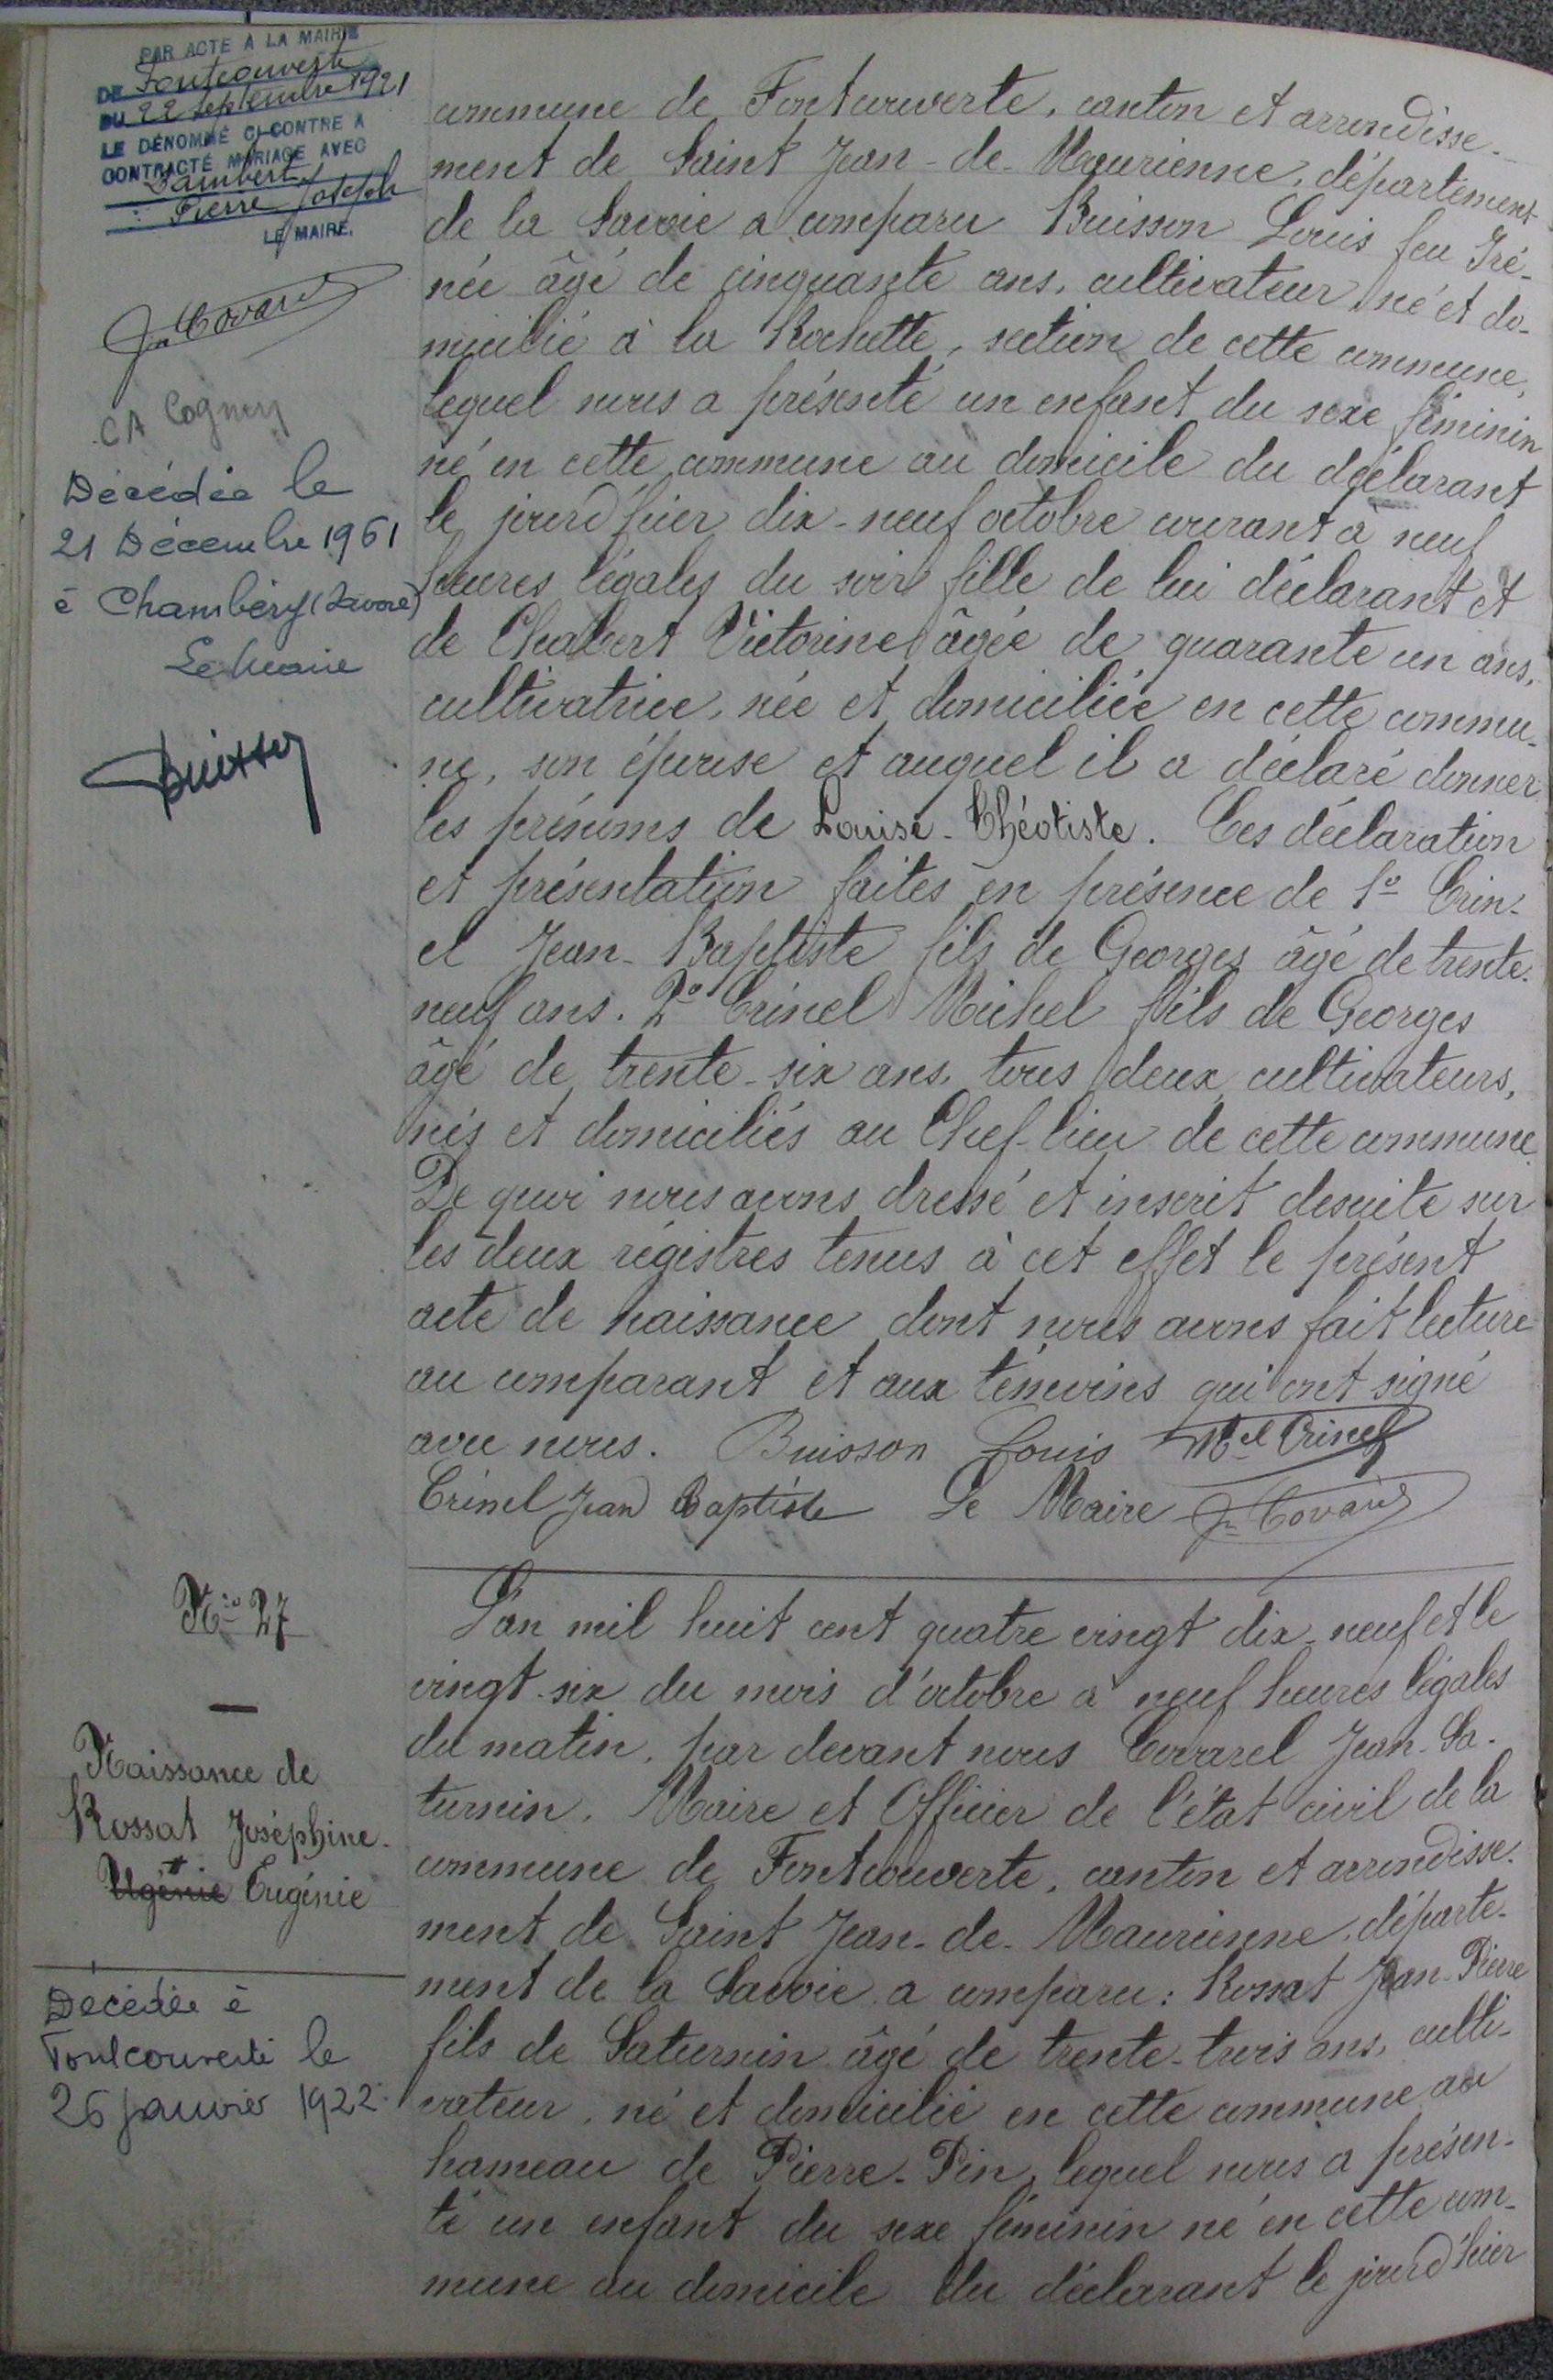 PAR ACTE À LA MAIRIE
DE Fontcouverte
DU 22 septembre 1921
LE DÉNOMMÉ CI-CONTRE A
CONTRACTÉ MARIAGE AVEC
Lambert
Pierre Joseph
LE MAIRE,
Jn Covarel
CA Cognin
Décédée le
21 Décembre 1961
à Chambéry (Savoie)
Le Maire
Buisson
commune de Fontcouverte, canton et arrondisse-
ment de Saint Jean-de-Maurienne, département
de la Savoie a comparu Buisson Louis feu Iré-
née âgé de cinquante ans, cultivateur né et do-
micilié à la Rochette, section de cette commune,
lequel nous a présenté un enfant du sexe féminin
né en cette commune au domicile du déclarant
le jourd'hier dix-neuf octobre courant à neuf
heures légales du soir fille de lui déclarant et
de Chabert Victorine âgée de quarante un ans,
cultivatrice, née et domiciliée en cette commu-
ne, son épouse et auquel il a déclaré donner
les prénoms de Louise-Théotiste. Ces déclaration
et présentation faites en présence de 1º Crin-
el Jean-Baptiste fils de Georges âgé de trente-
neuf ans. 2º Crinel Michel fils de Georges
âgé de trente-six ans, tous deux cultivateurs,
nés et domiciliés au Chef-lieu de cette commune.
De quoi nous avons dressé et inscrit desuite sur
les deux régistres tenus à cet effet le présent
acte de naissance dont nous avons fait lecture
au comparant et aux témoins qui ont signé
avec nous. Buisson Louis Mel Crinel
Crinel Jean Baptiste Le Maire Jn Covarel
Nº 27
Naissance de
Rossat Joséphine-
Ugénie Eugénie
Décédée à
Fontcouverte le
26 janvier 1922
L'an mil huit cent quatre vingt dix-neuf et le
vingt-six du mois d'octobre à neuf heures légales
du matin, par devant nous Covarel Jean-Sa-
turnin, Maire et Officier de l'état civil de la
commune de Fontcouverte, canton et arrondisse-
ment de Saint Jean-de-Maurienne, départe-
ment de la Savoie a comparu: Rossat Jean-Pierre
fils de Saturnin âgé de trente-trois ans, culti-
vateur, né et domicilié en cette commune au
hameau de Pierre-Pin, lequel nous a présen-
té un enfant du sexe féminin né en cette com-
mune au domicile du déclarant le jourd'hier